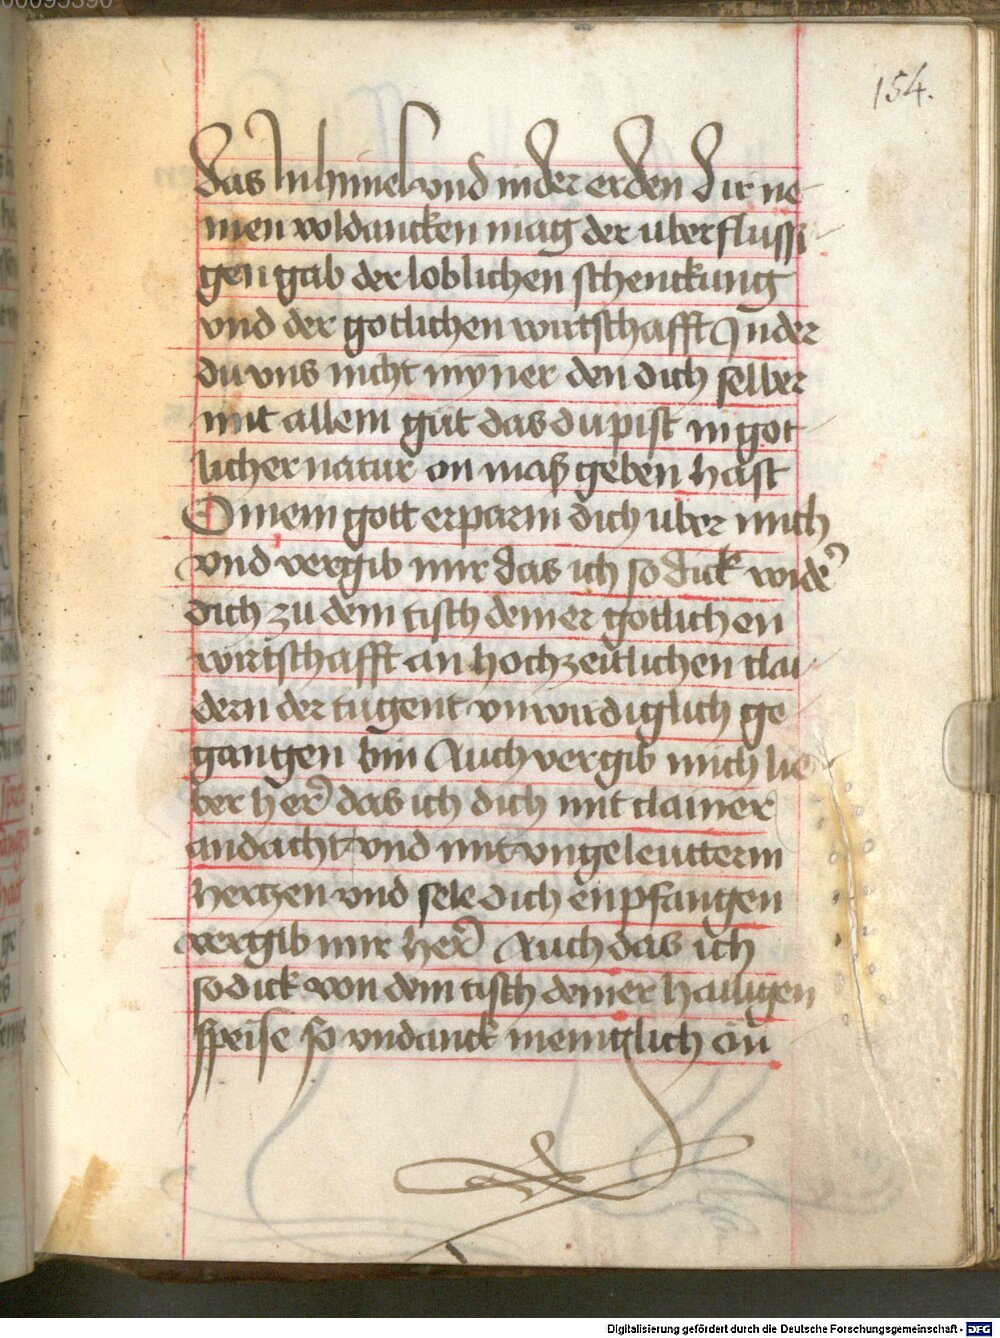 154.
das In himel vnd in der erden dir ne
men wol dancken mag der uberflussi
gen gab der loblichen schenckung
vnd der gotlichen wirtschafft In der
du vns nicht myner den dich selber
mit allem güt das du pist in got
licher natur on maß geben hast
O mein gott erparm dich uber mich
vnd vergib mir das ich so dick wider
dich zu dem tisch deiner gotlichen
wirtschafft an hochzeitlichen clai
dern der tugent vnwirdiglich ge
gangen bin Auch vergib mich lie
ber her das ich dich mit clainer
andacht vnd mit vngeleutterm
hertzen vnd sele dich enpfangen
vergib mir her Auch das ich
so dick von dem tisch deiner hailigen
speise so vndanck
Digitalisierung gefördert durch die Deutsche Forschungsgemeinschaft - DFG